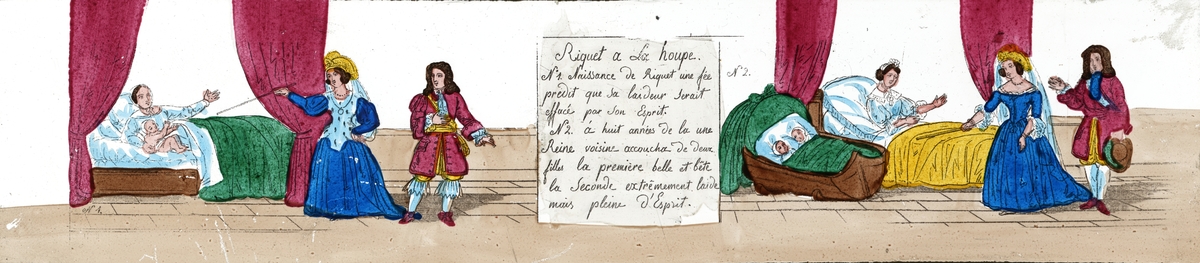 Riquet a La houpe.
N1. Naissance de Riquet une fée
prédit que sa laideur serait
effacé par son Esprit.
N2. á huit années de la une
Reine voisine accoucha de deux
filles la première belle et bête
la Seconde extrêmement laide
mais pleine d'Esprit.
N° 1.
N° 2.